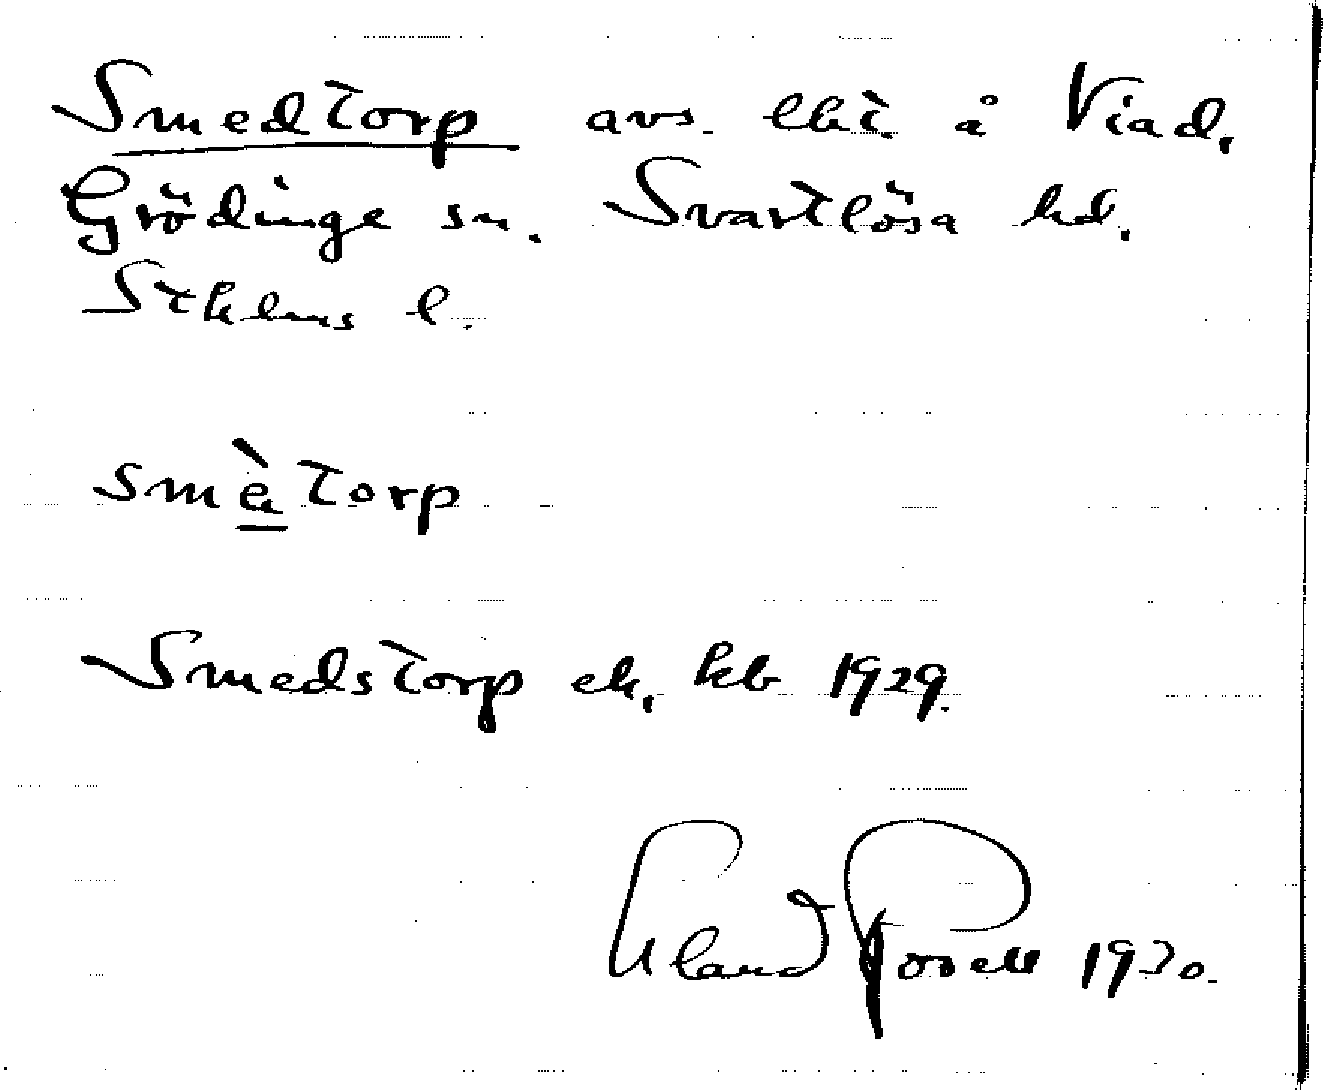 Smedtorp avs. lht. å Viad,
Grödinge sn. Svartlösa hd.
Sthlms l.
smè̱torp
Smedstorp ek. kb 1929.
Erland Rosell 1930.